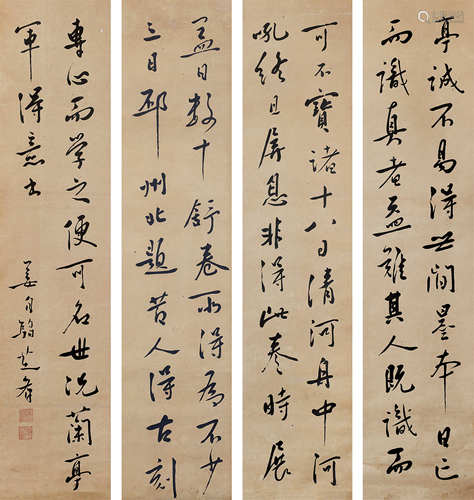 亭誠不易得世間墨本日亡
而識真者盖難其人既識而
可不寶諸十八日清河舟中河
吼終日屏息非得此卷時展
盖日數十舒卷所得為不少
三日邳州北題昔人得古刻
專心而学之便可名世况蘭亭
軍得意書
姜自